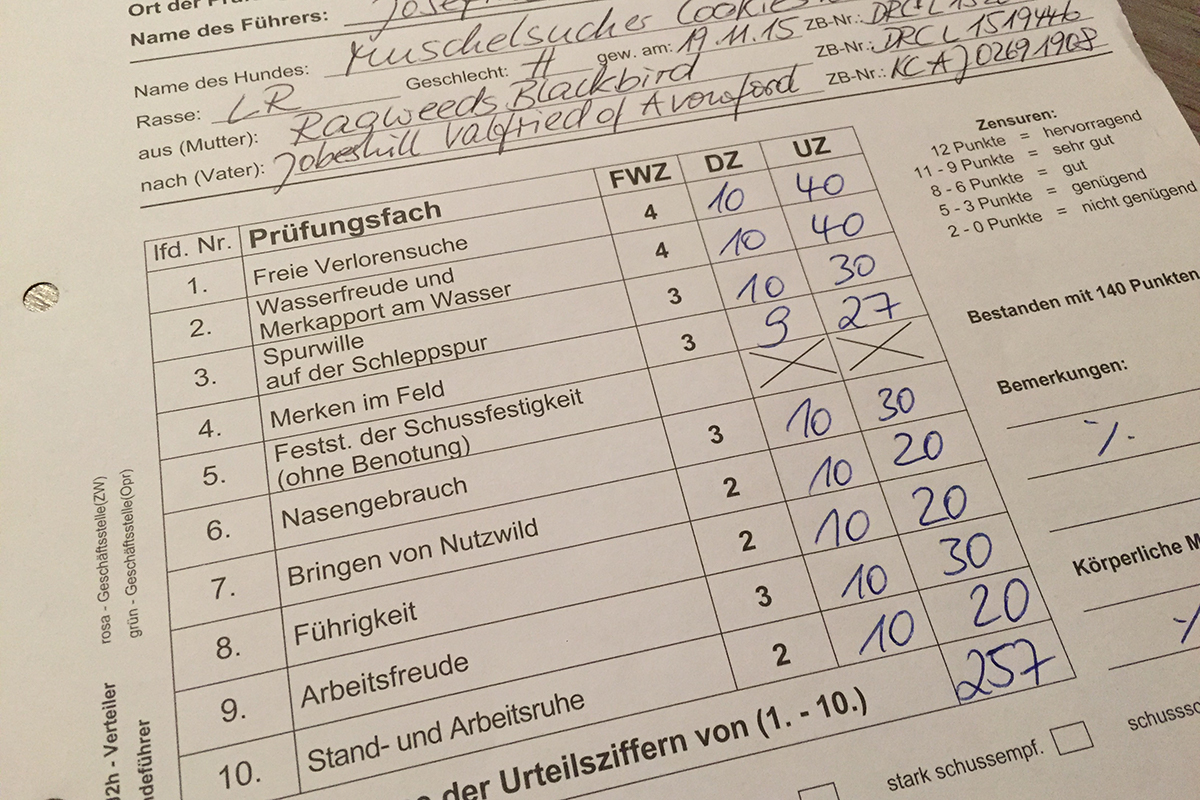 Ort der
Name des Führers:
Name des Hundes: Muschelsucher Cookies
Rasse: LR Geschlecht: H gew. am: 19.11.15 ZB-Nr.: DRC-L
aus (Mutter): Ragweeds Blackbird ZB-Nr.: DRC L 1519446
nach (Vater): Jobeshill Valfried of Avonford ZB-Nr.: KC AJ02691908
Zensuren:
12 Punkte = hervorragend
11 - 9 Punkte = sehr gut
8 - 6 Punkte = gut
5 - 3 Punkte = genügend
2 - 0 Punkte = nicht genügend
lfd. Nr. Prüfungsfach FWZ DZ UZ
1. Freie Verlorensuche 4 10 40
2. Wasserfreude und
Merkapport am Wasser 4 10 40
3. Spurwille
auf der Schleppspur 3 10 30
4. Merken im Feld 3 9 27
5. Festst. der Schussfestigkeit
(ohne Benotung)
6. Nasengebrauch 3 10 30
7. Bringen von Nutzwild 2 10 20
8. Führigkeit 2 10 20
9. Arbeitsfreude 3 10 30
10. Stand- und Arbeitsruhe 2 10 20
der Urteilsziffern von (1. - 10.) 257
Bestanden mit 140 Punkten
Bemerkungen:
Körperliche M
stark schussempf.
rosa - Geschäftsstelle(ZW)
grün - Geschäftsstelle(Opr)
02h - Verteiler